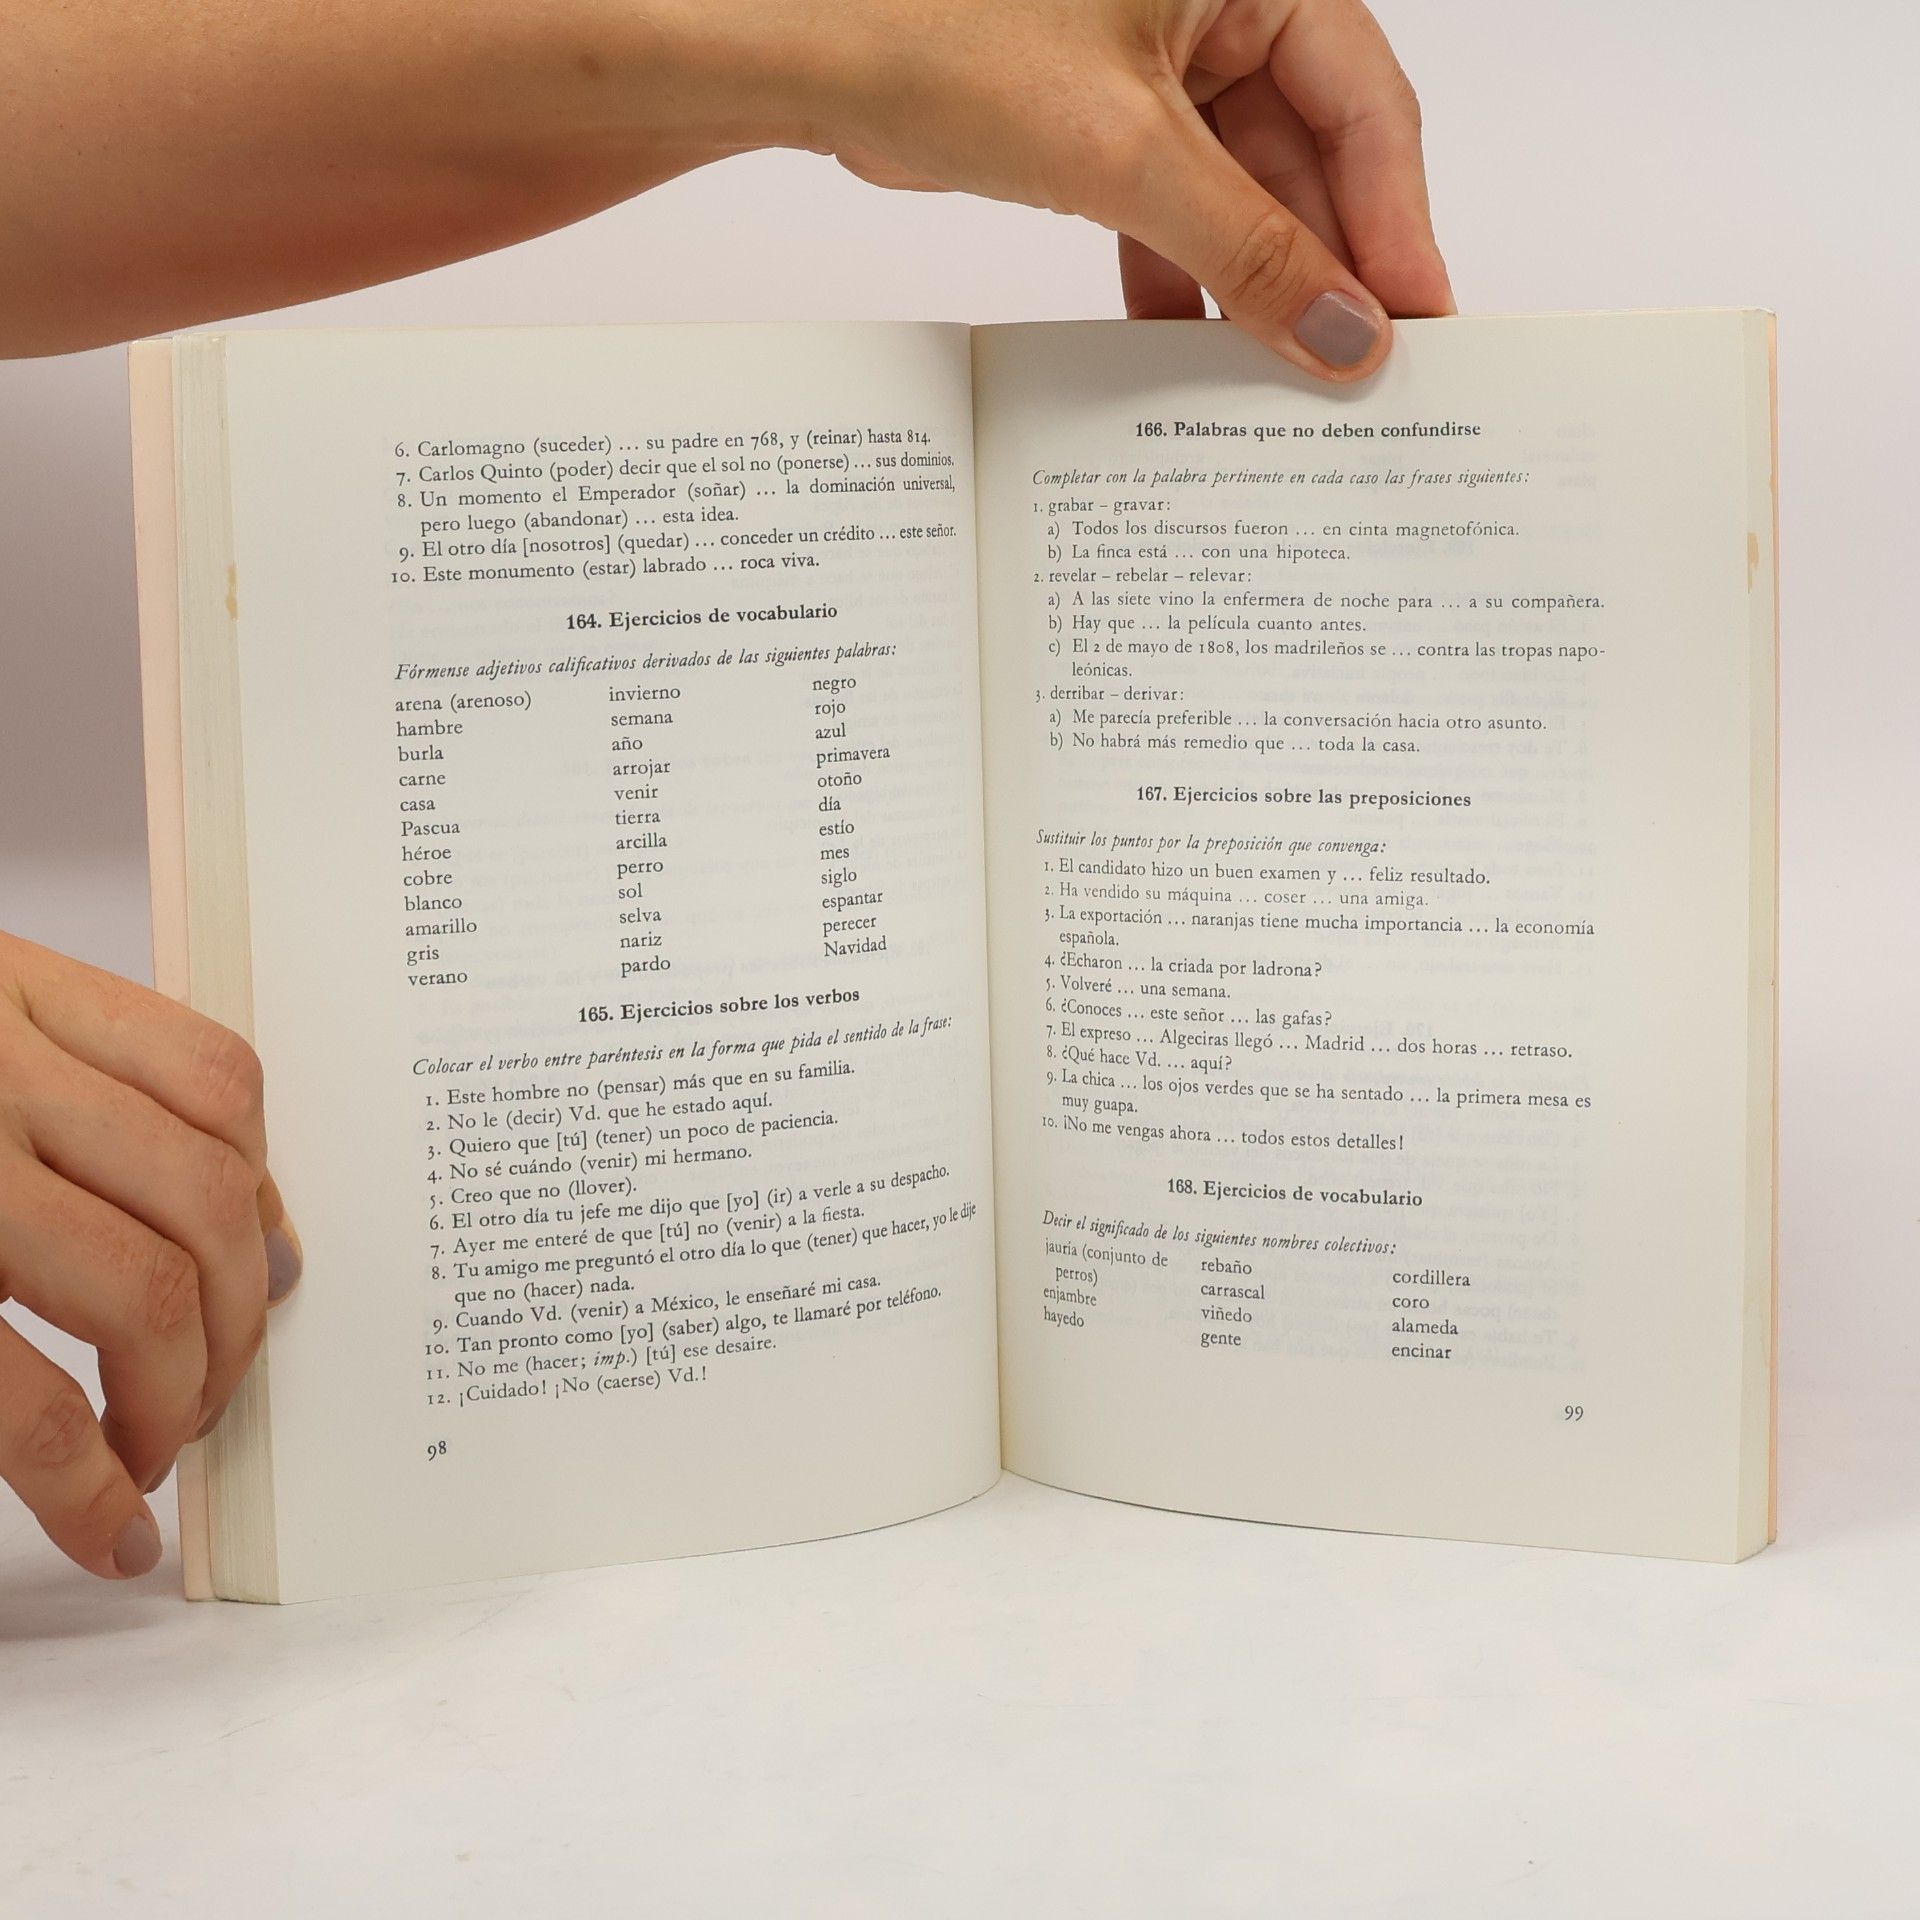 6. Carlomagno (suceder) ... su padre en 768, y (reinar) hasta 814.
7. Carlos Quinto (poder) decir que el sol no (ponerse) ... sus dominios.
8. Un momento el Emperador (soñar) ... la dominación universal,
pero luego (abandonar) ... esta idea.
9. El otro día [nosotros] (quedar) ... conceder un crédito ... este señor.
10. Este monumento (estar) labrado ... roca viva.
164. Ejercicios de vocabulario
Fórmense adjetivos calificativos derivados de las siguientes palabras:
arena (arenoso)
hambre
burla
carne
casa
Pascua
héroe
cobre
blanco
amarillo
gris
verano
invierno
semana
año
arrojar
venir
tierra
arcilla
perro
sol
selva
nariz
pardo
negro
rojo
azul
primavera
otoño
día
estío
mes
siglo
espantar
perecer
Navidad
165. Ejercicios sobre los verbos
Colocar el verbo entre paréntesis en la forma que pida el sentido de la frase:
1. Este hombre no (pensar) más que en su familia.
2. No le (decir) Vd. que he estado aquí.
3. Quiero que [tú] (tener) un poco de paciencia.
4. No sé cuándo (venir) mi hermano.
5. Creo que no (llover).
6. El otro día tu jefe me dijo que [yo] (ir) a verle a su despacho.
7. Ayer me enteré de que [tú] no (venir) a la fiesta.
8. Tu amigo me preguntó el otro día lo que (tener) que hacer, yo le dije
que no (hacer) nada.
9. Cuando Vd. (venir) a México, le enseñaré mi casa.
10. Tan pronto como [yo] (saber) algo, te llamaré por teléfono.
11. No me (hacer; imp.) [tú] ese desaire.
12. ¡Cuidado! ¡No (caerse) Vd.!
98
166. Palabras que no deben confundirse
Completar con la palabra pertinente en cada caso las frases siguientes:
1. grabar – gravar:
a) Todos los discursos fueron ... en cinta magnetofónica.
b) La finca está ... con una hipoteca.
2. revelar – rebelar – relevar:
a) A las siete vino la enfermera de noche para ... a su compañera.
b) Hay que ... la película cuanto antes.
c) El 2 de mayo de 1808, los madrileños se ... contra las tropas napo-
leónicas.
3. derribar – derivar:
a) Me parecía preferible ... la conversación hacia otro asunto.
b) No habrá más remedio que ... toda la casa.
167. Ejercicios sobre las preposiciones
Sustituir los puntos por la preposición que convenga:
1. El candidato hizo un buen examen y ... feliz resultado.
2. Ha vendido su máquina ... coser ... una amiga.
3. La exportación ... naranjas tiene mucha importancia ... la economía
española.
4. ¿Echaron ... la criada por ladrona?
5. Volveré ... una semana.
6. ¿Conoces ... este señor ... las gafas?
7. El expreso ... Algeciras llegó ... Madrid ... dos horas ... retraso.
8. ¿Qué hace Vd. ... aquí?
9. La chica ... los ojos verdes que se ha sentado ... la primera mesa es
muy guapa.
10. ¡No me vengas ahora ... todos estos detalles!
168. Ejercicios de vocabulario
Decir el significado de los siguientes nombres colectivos:
jauría (conjunto de
perros)
enjambre
hayedo
rebaño
carrascal
viñedo
gente
cordillera
coro
alameda
encinar
99